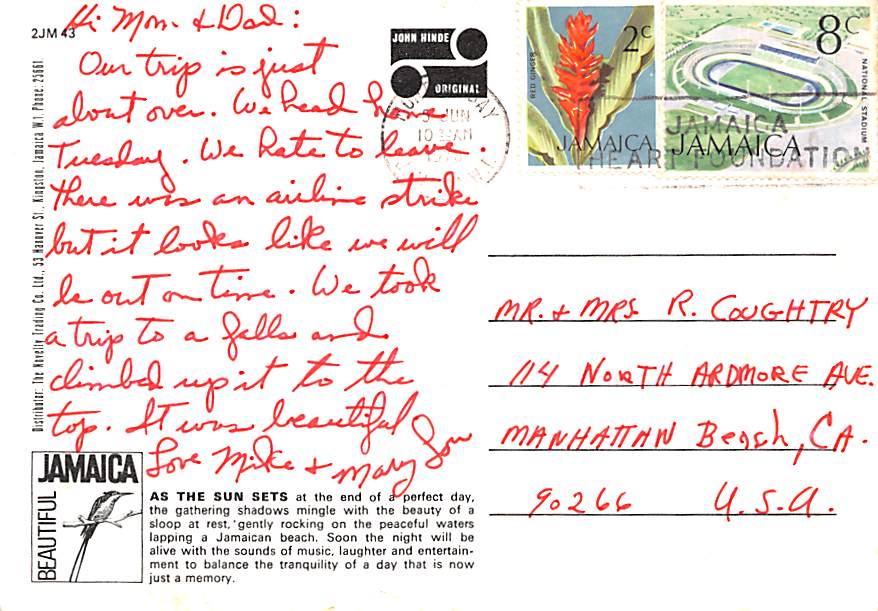 2JM 43
Hi Mom & Dad:
Our trip is just
about over. We head home
Tuesday. We hate to leave.
There was an airline strike
but it looks like we will
be out on time. We took
a trip to a falls and
climbed up it to the
top. It was beautiful
Love Mike & Mary Lou
Distributor: The Novelty Trading Co. Ltd., 53 Hanover St., Kingston, Jamaica W.I. Phone: 25661
JOHN HINDE
ORIGINAL
JUN
10 AM
RED GINGER
2c
JAMAICA
8c
NATIONAL STADIUM
JAMAICA
JAMAICA
HEART FOUNDATION
MR. & MRS R. COUGHTRY
114 NORTH ARDMORE AVE.
MANHATTAN Beach, CA.
90266 U.S.A.
BEAUTIFUL
JAMAICA
AS THE SUN SETS at the end of a perfect day,
the gathering shadows mingle with the beauty of a
sloop at rest, gently rocking on the peaceful waters
lapping a Jamaican beach. Soon the night will be
alive with the sounds of music, laughter and entertain-
ment to balance the tranquility of a day that is now
just a memory.